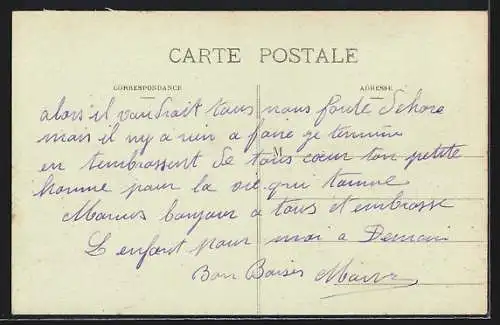 CARTE POSTALE
CORRESPONDANCE
ADRESSE
M
alors il vaudrait tous nous foute dehore
mais il ny a rien a faire ge termine
en tembrassent de tous cœur ton petite
homme pour la vie qui taime
Marius bonjour a tous et embrasse
L enfant pour moi a Demain
Bon Baiser